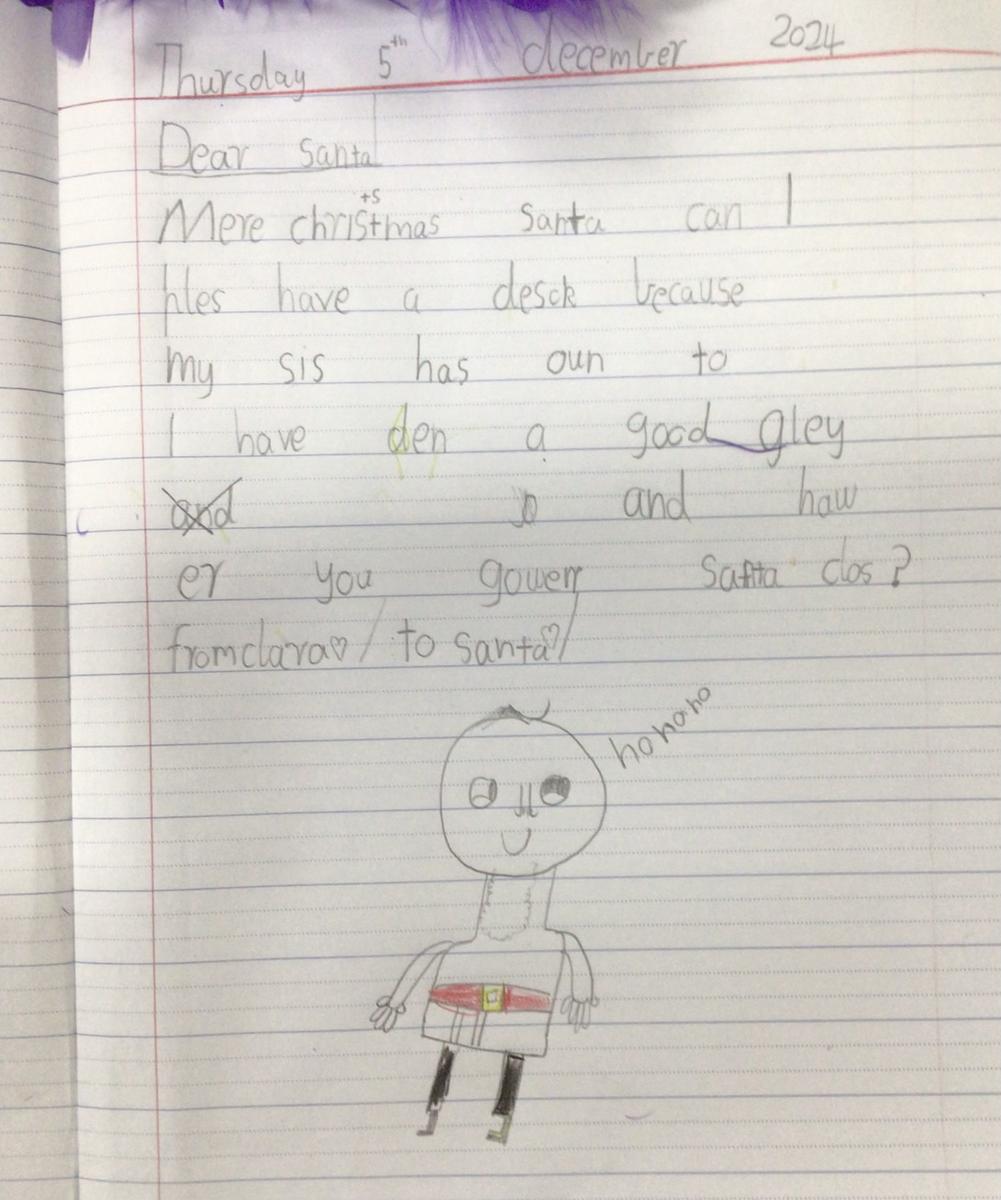 Thursday 5th december 2024
Dear Santa
+s
Mere christmas Santa can I
ples have a desck because
my sis has oun to
I have den a good gley
and and haw
er you gowen Santa clos?
fromclara♡/ to santa♡/
hohoho